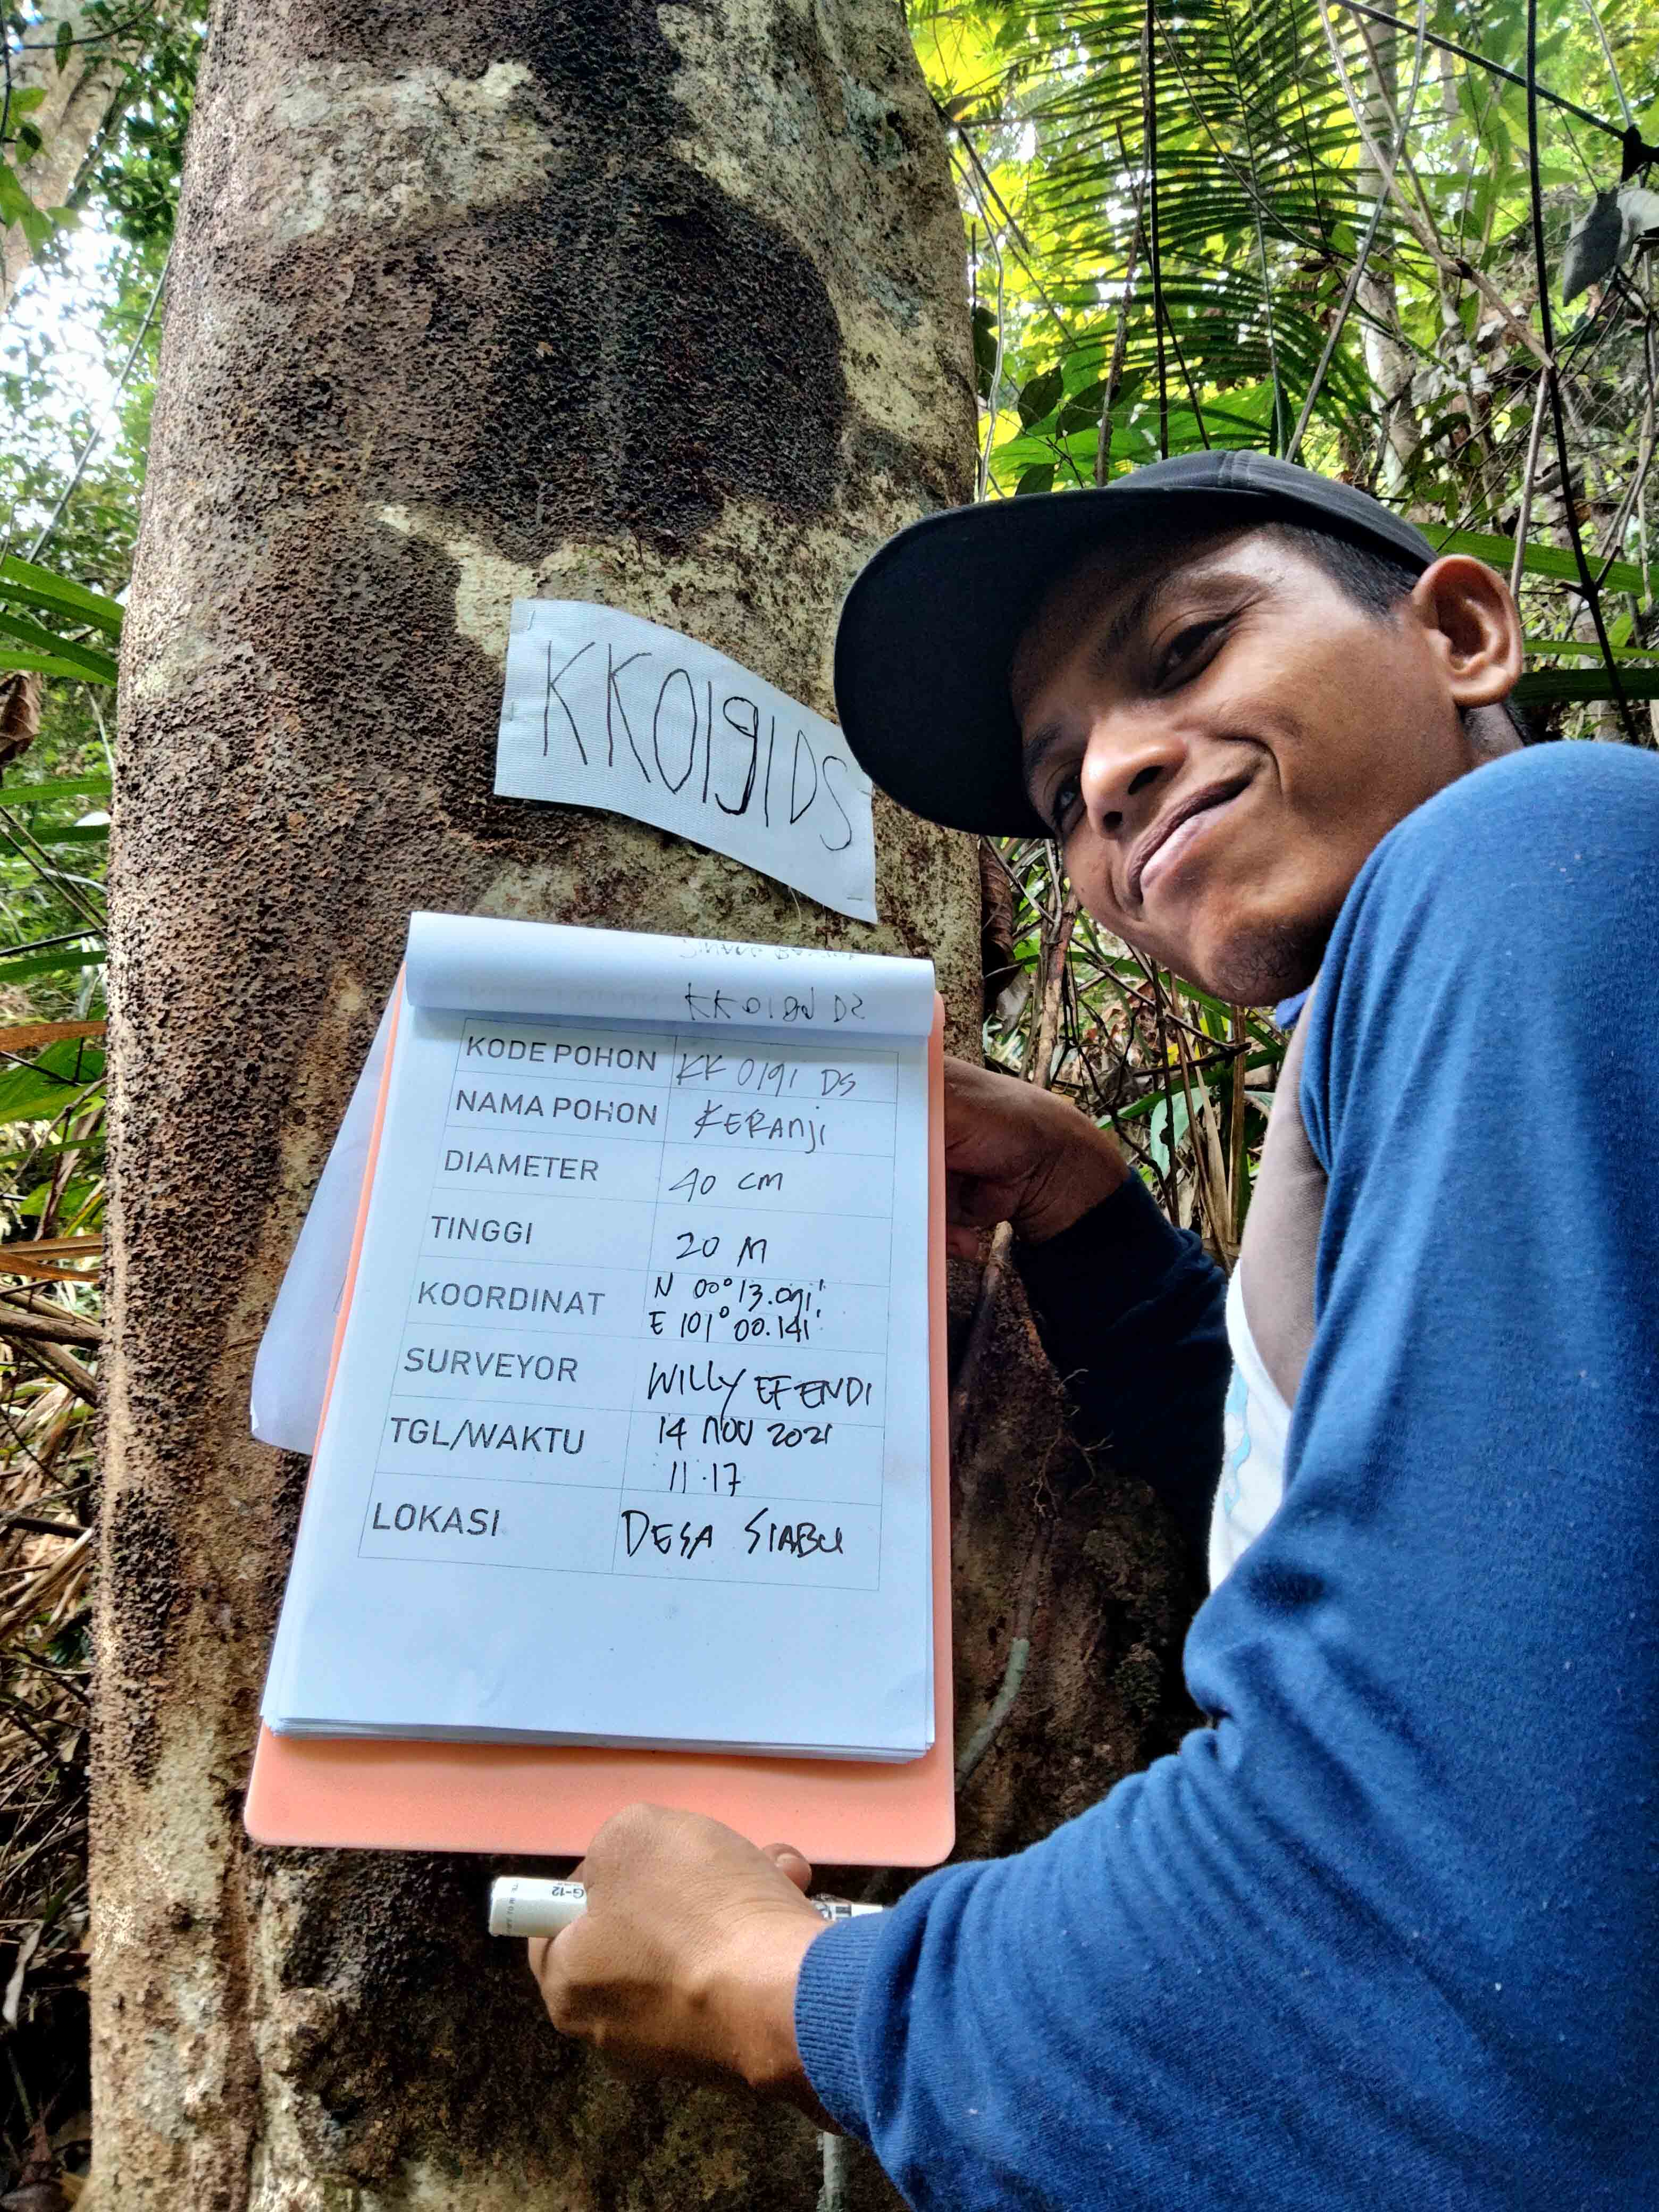 KK0191DS
KODE POHON KK 0191 DS
NAMA POHON KERANJI
DIAMETER 40 CM
TINGGI 20 M
KOORDINAT N 00° 13.091'
E 101° 00.141'
SURVEYOR WILLY EFENDI
TGL/WAKTU 14 NOV 2021
11.17
LOKASI DESA SIABU
G-12